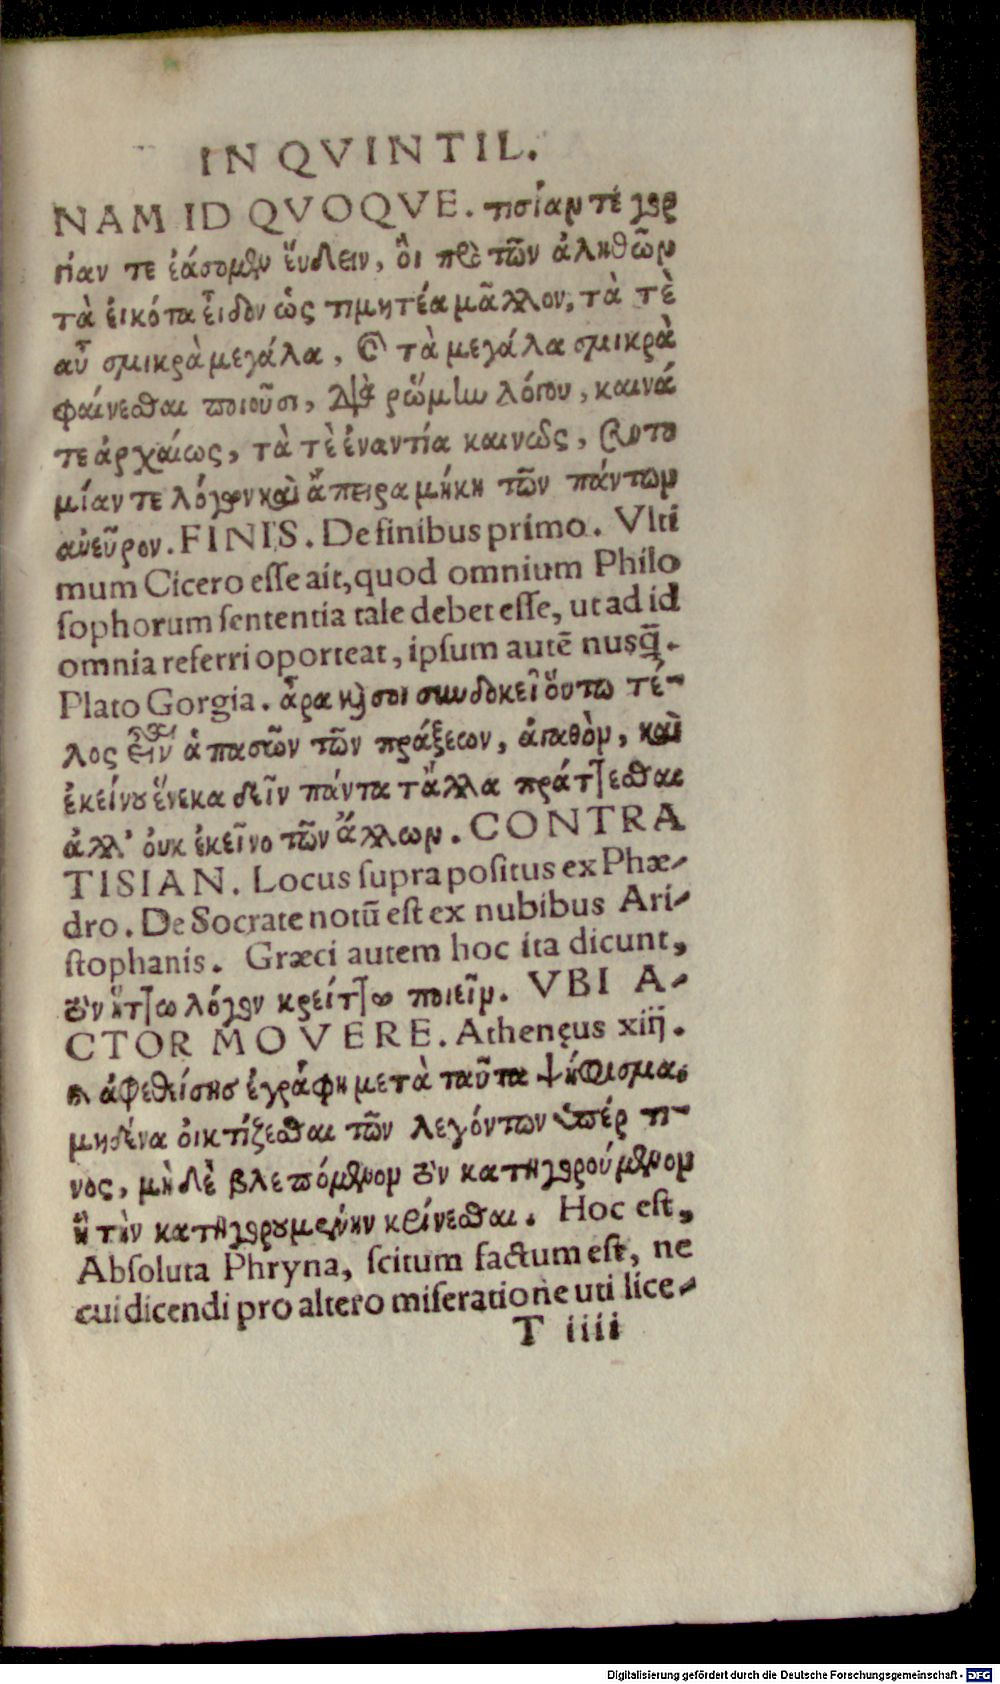 IN QVINTIL.
NAM ID QVOQVE. τισίαν τὲ γορ
γίαν τε ἐάσομεν ἕυδειν, ὃι πρὸ τῶν ἀληθῶν
τὰ ἐικότα εἶδον ὡς τιμητέα μᾶλλον, τὰ τὲ
αὖ σμικρὰ μεγάλα, καὶ τὰ μεγάλα σμικρὰ
φαίνεσθαι ποιοῦσι, διὰ ῥώμην λόγου, καινά
τε ἀρχαίως, τὰ τὲ ἐναντία καινῶς, συντο
μίαν τε λόγων καὶ ἄπειρα μήκη τῶν πάντων
ἀυεῦρον. FINIS. De finibus primo. Vlti
mum Cicero esse ait, quod omnium Philo
sophorum sententia tale debet esse, ut ad id
omnia referri oporteat, ipsum autē nusq̄.
Plato Gorgia. ἆρα καὶ σοι συνδοκεῖ ὅυτω τέ-
λος εἶναι ἁπασῶν τῶν πράξεων, ἀγαθὸν, καὶ
ἐκείνου ἕνεκα δεῖν πάντα τἄλλα πράττεσθαι
ἀλλ' ὀυκ ἐκεῖνο τῶν ἄλλων. CONTRA
TISIAN. Locus supra positus ex Phæ-
dro. De Socrate notū est ex nubibus Ari-
stophanis. Græci autem hoc ita dicunt,
τὸν ἥττω λόγον κρείττω ποιεῖν. VBI A-
CTOR MOVERE. Athenęus xiij.
ἀφεθίσησ ἐγράφη μετὰ ταῦτα ψήφισμα,
μηδένα ὀικτίζεσθαι τῶν λεγόντων ὑπέρ τι-
νος, μὴδὲ βλεπόμενον τὸν κατηγορούμενον
ἢ τὴν κατηγορουμένην κρίνεσθαι. Hoc est,
Absoluta Phryna, scitum factum est, ne
cui dicendi pro altero miseratione uti lice-
T iiii
Digitalisierung gefördert durch die Deutsche Forschungsgemeinschaft - DFG